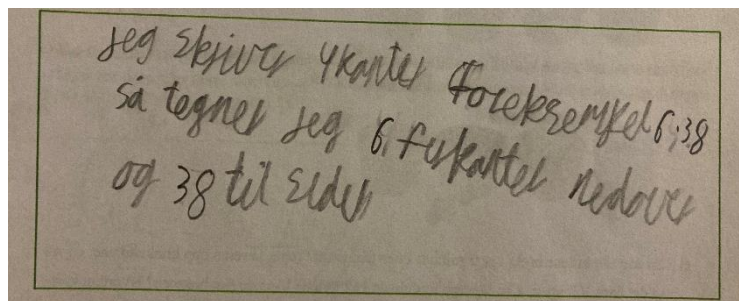 jeg skriver 4kanter foreksempel 6;38
så tegner jeg 6. firkanter nedover
og 38 til siden